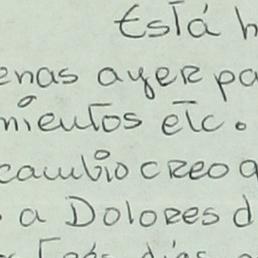 Está h
enas ayer pa
mientos etc.
cambio creo q
a Dolores d
días